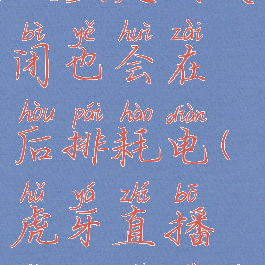 bì yě huì zài
闭也会在
hòu pái hào diàn
后排耗电(
hǔ yá zhí bō
虎牙直播